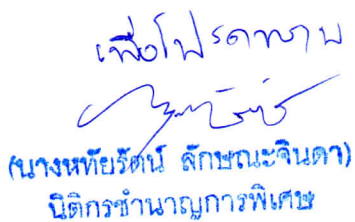 เพื่อโปรดทราบ
(นางหทัยรัตน์ ลักษณะจินดา)
นิติกรชำนาญการพิเศษ